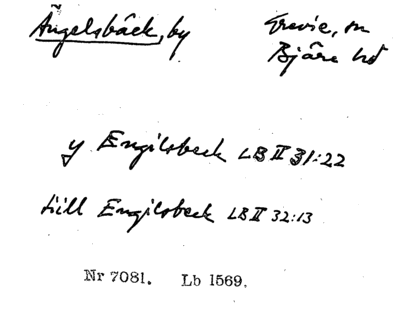 Ängelsbäck, by Grevie, sn
Bjäre hd
y Engilsbeck LB II 31:22
till Engilsbeck LB II 32:13
Nr 7081. Lb 1569.